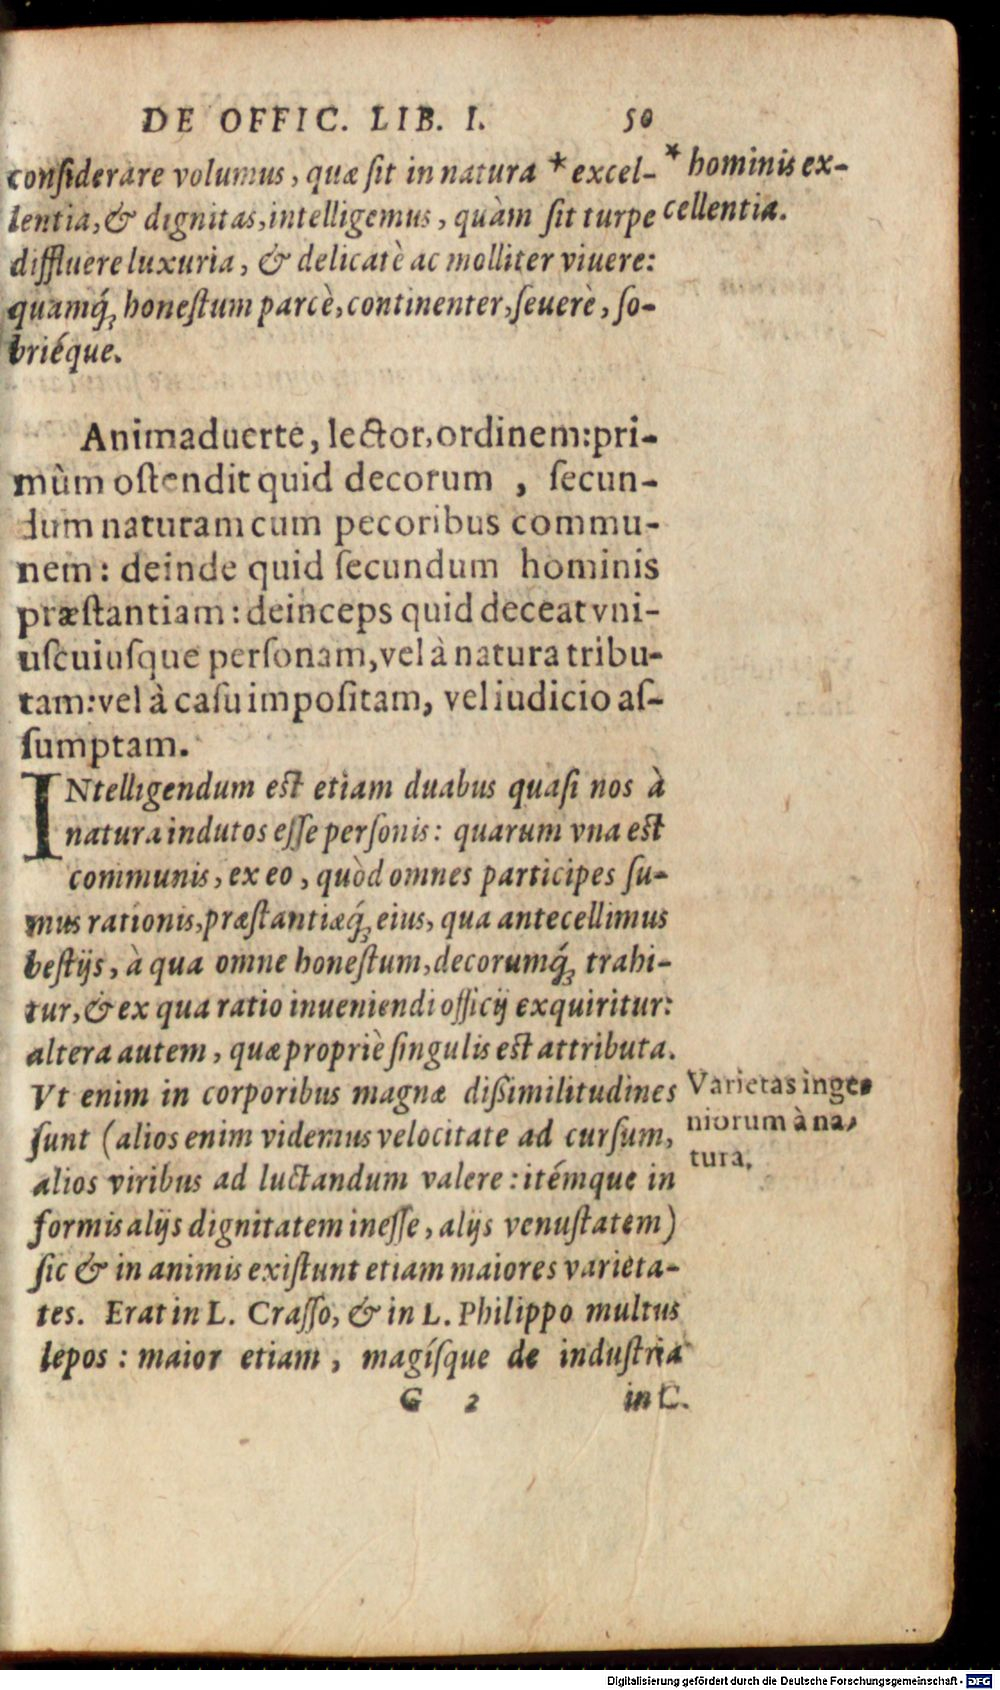 DE OFFIC. LIB. I. 50
conſiderare volumus, quæ ſit in natura * excel-
lentia, & dignitas, intelligemus, quàm ſit turpe
diffluere luxuria, & delicatè ac molliter viuere:
quamq́; honeſtum parcè, continenter, ſeuerè, ſo-
briéque.
* hominis ex-
cellentia.
Animaduerte, lector, ordinem: pri-
mùm oſtendit quid decorum , ſecun-
dum naturam cum pecoribus commu-
nem: deinde quid ſecundum hominis
præſtantiam: deinceps quid deceat vni-
uſcuiuſque perſonam, vel à natura tribu-
tam: vel à caſu impoſitam, vel iudicio aſ-
ſumptam.
INtelligendum eſt etiam duabus quaſi nos à
natura indutos eſſe perſonis: quarum vna eſt
communis, ex eo, quòd omnes participes ſu-
mus rationis, præſtantiæq́; eius, qua antecellimus
beſtijs, à qua omne honeſtum, decorumq́; trahi-
tur, & ex qua ratio inueniendi officij exquiritur:
altera autem, quæ propriè ſingulis eſt attributa.
Vt enim in corporibus magnæ diſſimilitudines
ſunt (alios enim videmus velocitate ad curſum,
alios viribus ad luctandum valere: itémque in
formis alijs dignitatem ineſſe, alijs venuſtatem)
ſic & in animis exiſtunt etiam maiores varieta-
tes. Erat in L. Craſſo, & in L. Philippo multus
lepos: maior etiam, magíſque de induſtria
Varietas inge-
niorum à na-
tura.
G 2 in C.
Digitalisierung gefördert durch die Deutsche Forschungsgemeinschaft - DFG